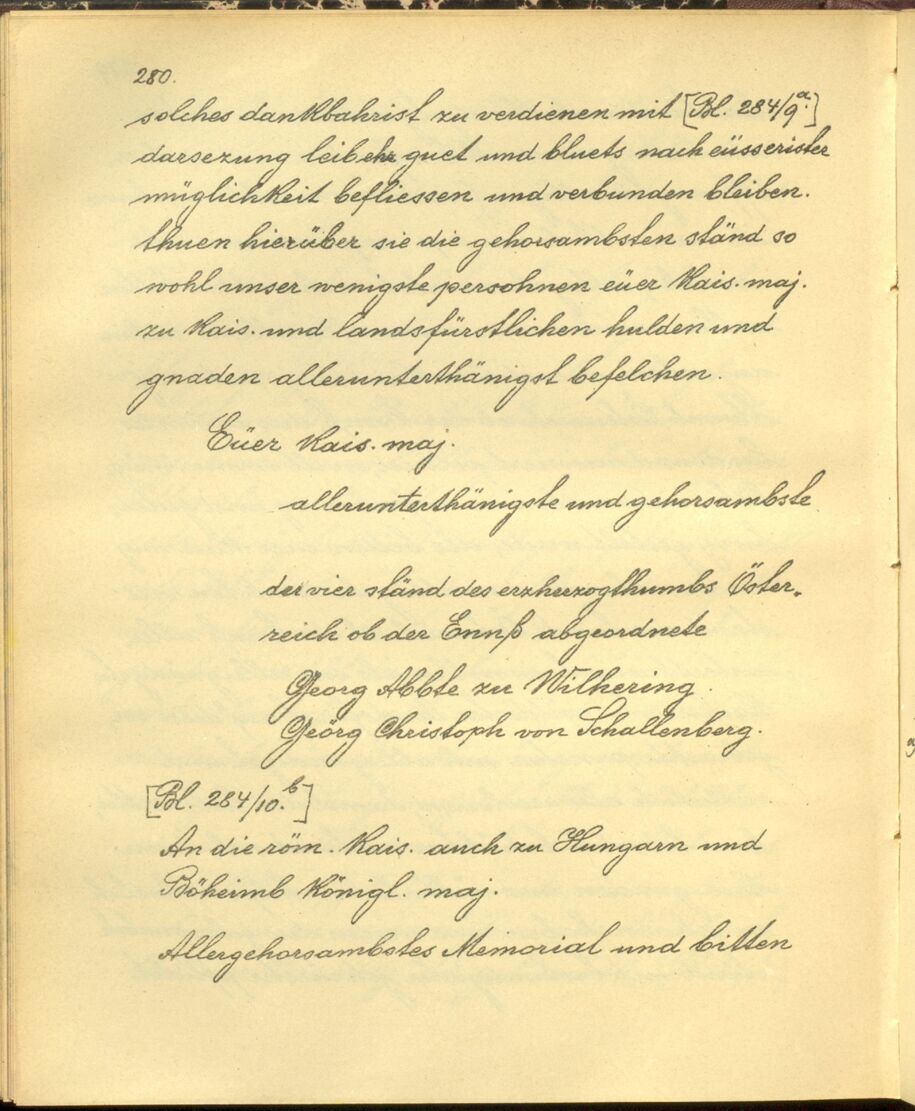 280.
solches dankbahrist zu verdienen mit [Bl. 284/9a.]
darsezung leib ehr guet und bluets nach eüsserister
müglichkeit befliessen und verbunden bleiben.
thuen hierüber sie die gehorsambsten ständ so
wohl unser wenigste persohnen eüer kais. maj.
zu kais. und landsfürstlichen hulden und
gnaden allerunterthänigst befelchen.
Eüer kais. maj.
allerunterthänigste und gehorsambste
der vier ständ des erzherzogthumbs Öster-
reich ob der Ennß abgeordnete
Georg Abbte zu Wilhering.
Georg Christoph von Schallenberg.
[Bl. 284/10.b]
An die röm. kais. auch zu Hungarn und
Böheimb königl. maj.
Allergehorsambstes Memorial und bitten